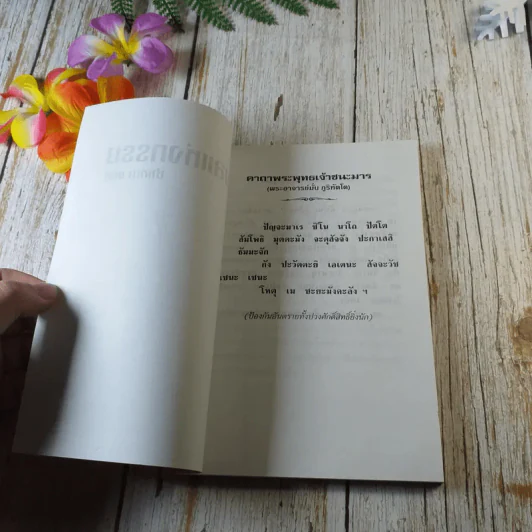 คาถาพระพุทธเจ้าชนะมาร
(พระอาจารย์มั่น ภูริทัตโต)
ปัญจะมาเร ชิโน นาโถ ปัตโต
สัมโพธิ มุตตะมัง จะตุสัจจัง ปะกาเสสิ
ธัมมะจัก
กัง ปะวัตตะยิ เอเตนะ สัจจะวัช
เชนะ เชนะ
โหตุ เม ชะยะมังคะลัง ฯ
(ป้องกันอันตรายทั้งปวงศักดิ์สิทธิ์ยิ่งนัก)